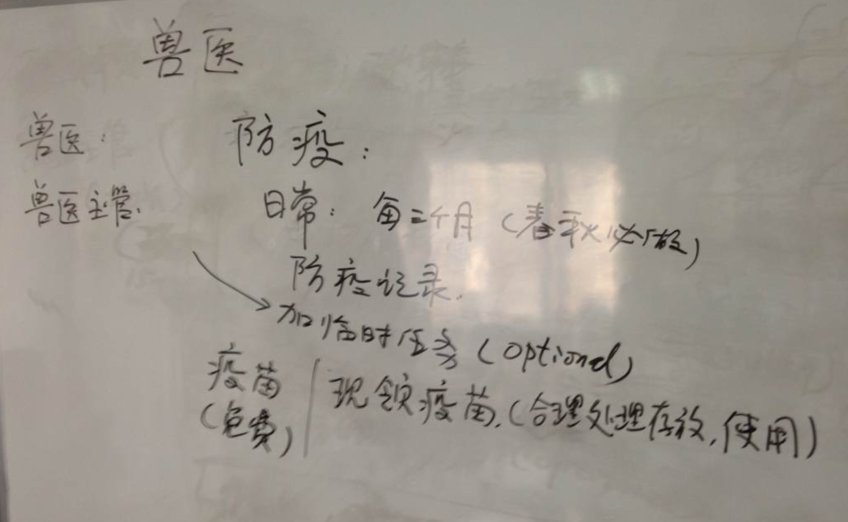 兽医
兽医: 防疫:
兽医主管. 日常: 每二个月 (春秋必做)
防疫记录.
加临时任务 (optional)
疫苗 / 现领疫苗. (合理处理存放, 使用)
(免费)